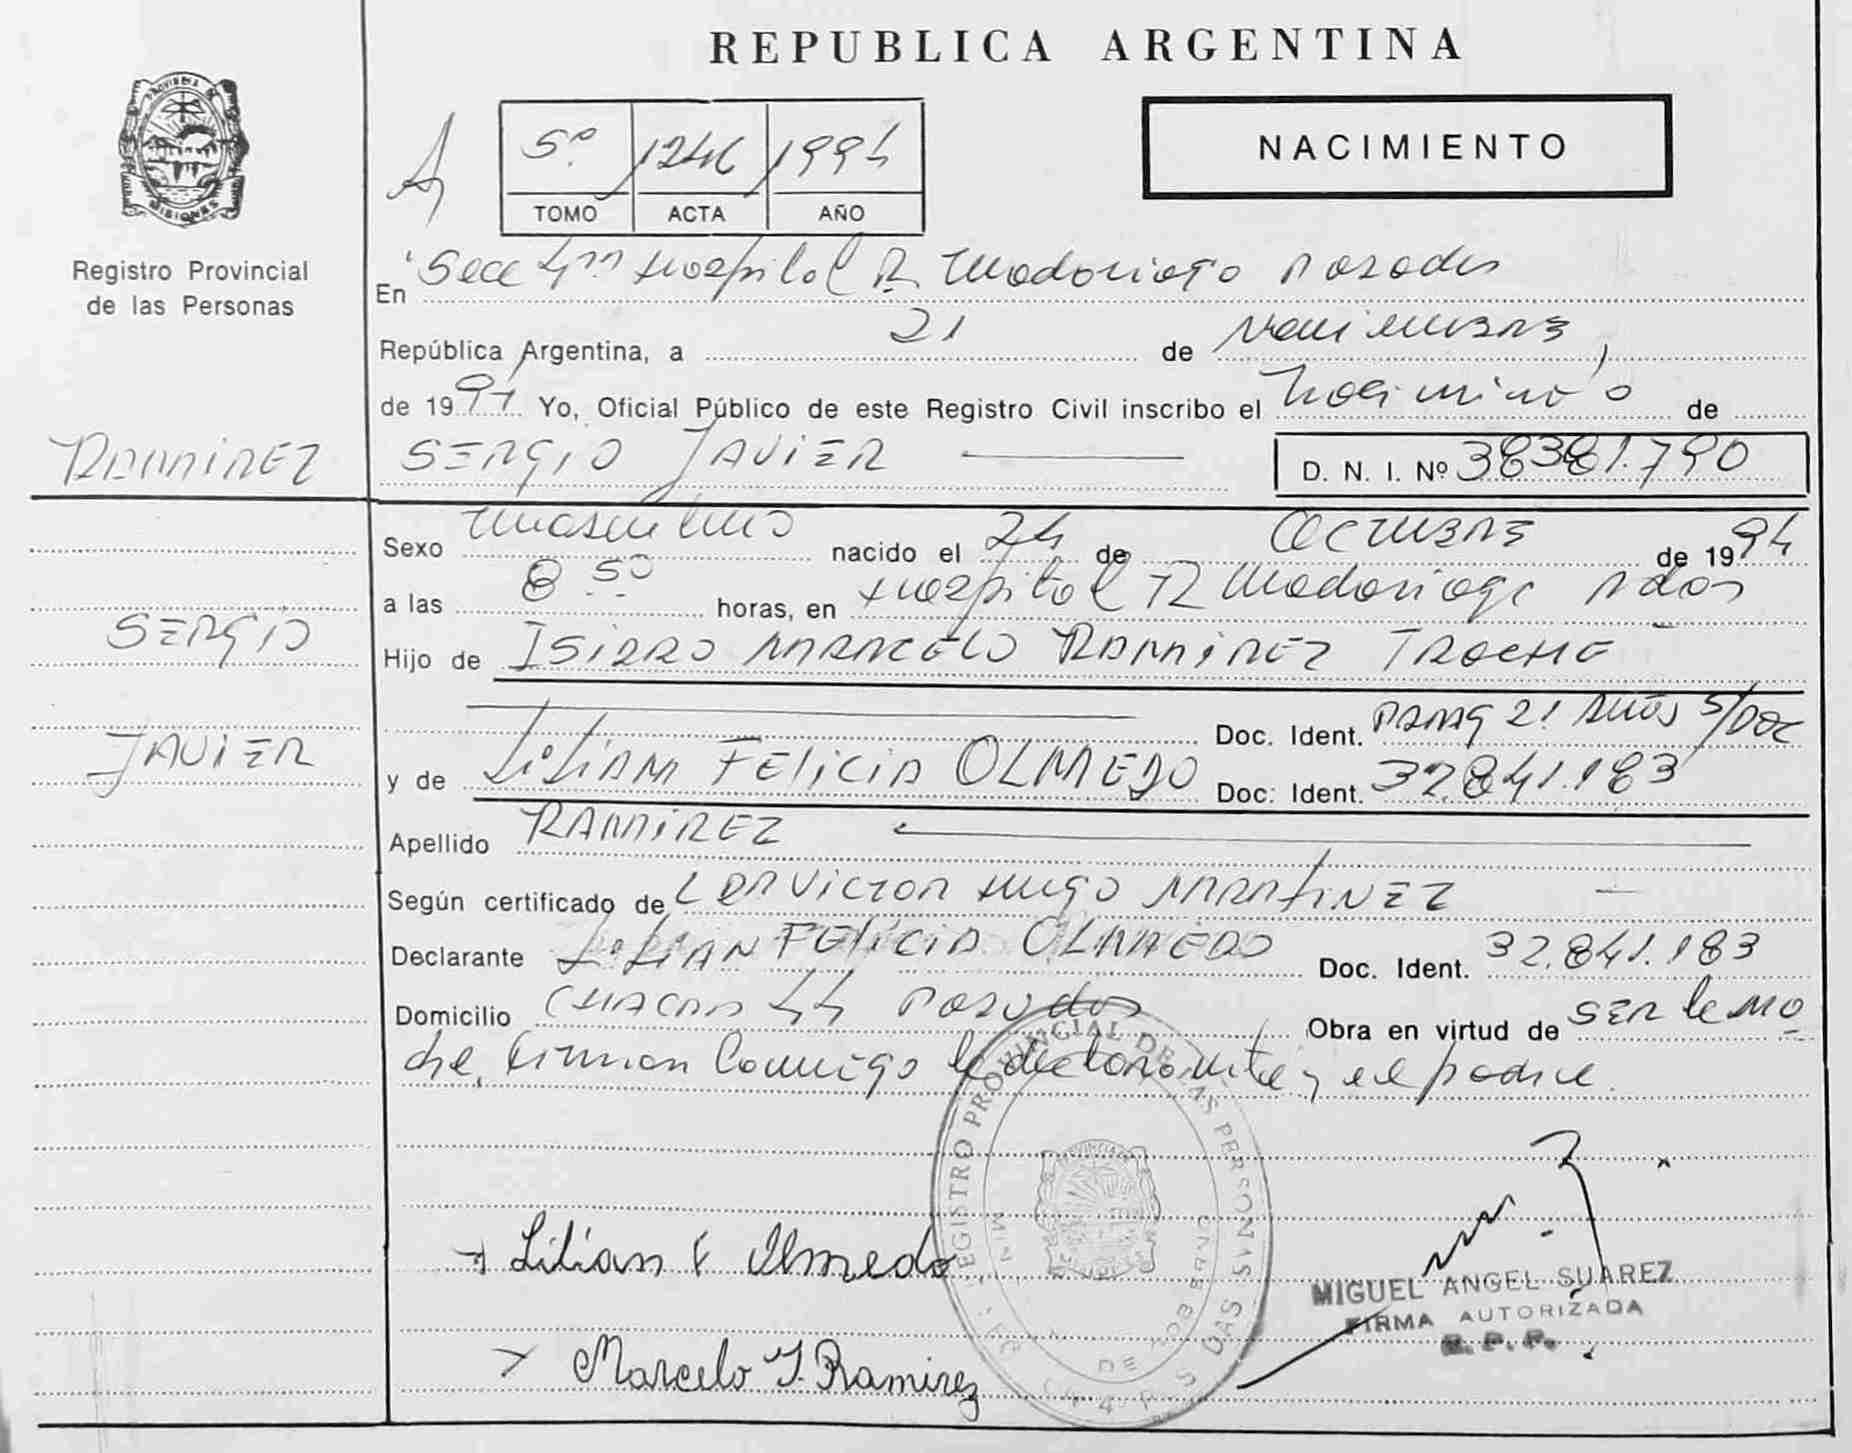 REPUBLICA ARGENTINA
PROVINCIA DE MISIONES
Registro Provincial
de las Personas
5º 1246 1994
TOMO ACTA AÑO
NACIMIENTO
En Secc Hospital R. Madariaga Posadas
República Argentina, a 21 de Noviembre
de 1994 Yo, Oficial Público de este Registro Civil inscribo el Nacimiento de
RAMIREZ
SERGIO JAVIER
D. N. I. Nº 38381.790
Sexo masculino nacido el 24 de OCTUBRE de 1994
a las 8 50 horas, en Hospital R Madariaga Pdas
SERGIO
Hijo de ISIDRO MARCELO RAMIREZ TROCHE
Doc. Ident. PARAG 21 AÑOS S/DOC
JAVIER
y de LILIAN FELICIA OLMEDO Doc. Ident. 32.841.183
Apellido RAMIREZ
Según certificado de VICTOR HUGO MARTINEZ
Declarante LILIAN FELICIA OLMEDO Doc. Ident. 32.841.183
Domicilio CHACRA 44 Posadas Obra en virtud de SER la MA
dre, firman conmigo la declarante y el padre.
REGISTRO PROVINCIAL DE LAS PERSONAS
Lilian F Olmedo
MIGUEL ANGEL SUAREZ
FIRMA AUTORIZADA
R. P. P.
Marcelo I. Ramirez